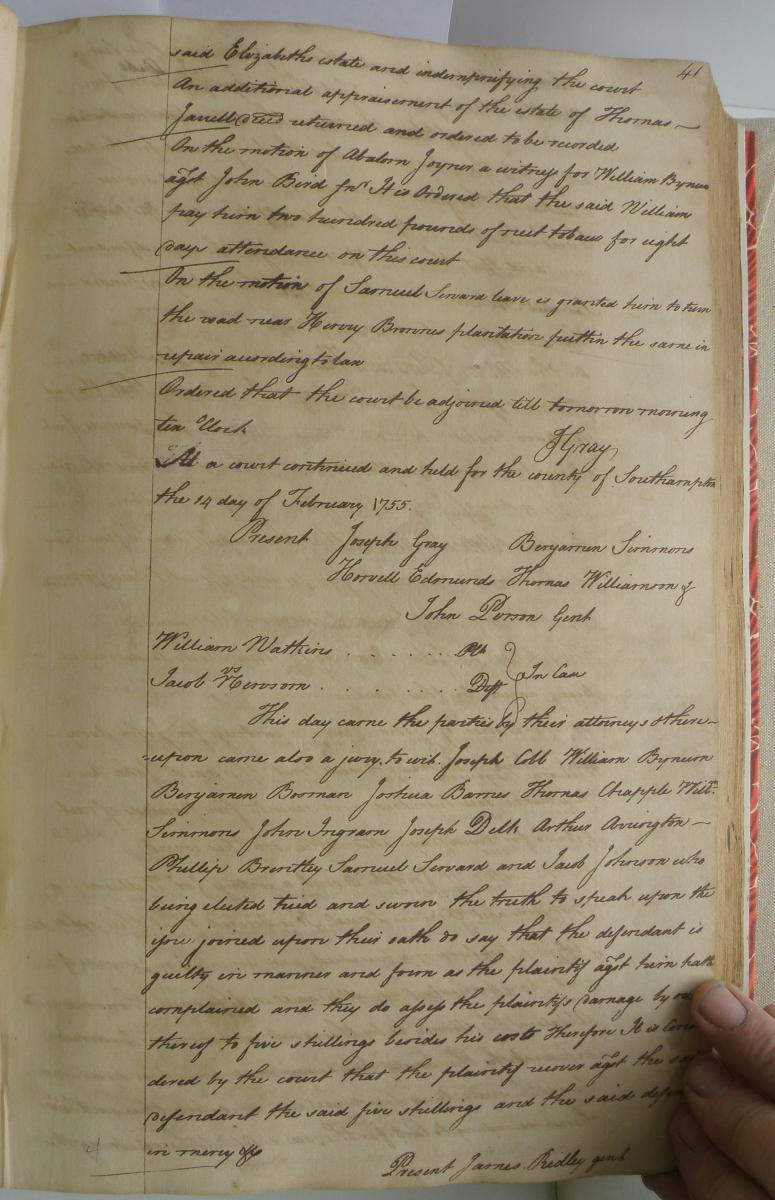 41
said Elizabeths estate and indempnifying the court
An additional appraisement of the estate of Thomas
Jarrell deced returned and ordered to be recorded
On the motion of Absalom Joyner a witness for William Bynum
agst John Bird Junr It is Ordered that the said William
pay him two hundred pounds of neet tobaco for eight
days attendance on this court
On the motion of Samuel Seward leave is granted him to turn
the road near Henry Brownes plantation puttin the same in
repair according to law
Ordered that the court be adjoined till tomorrow morning
ten Clock
J Gray
At a court continued and held for the county of Southampton
the 14 day of February 1755.
Present Joseph Gray Benjamen Simmons
Howell Edmunds Thomas Williamson &
John Person Gent
William Watkins . . . . . . . Plt
vs In Case
Jacob Newsom . . . . . . . Deft
This day came the parties by their attorneys & there-
-upon came also a jury, to wit. Joseph Cobb William Bynum
Benjamen Bowman Joshua Barnes Thomas Chapple Willm
Simmons John Ingram Joseph Delk Arthur Arrington
Phillip Brentley Samuel Seward and Jacob Johnson who
being elected tried and sworn the truth to speak upon the
issue joined upon their oath do say that the defendant is
guilty in manner and form as the plaintif agst him hath
complained and they do assess the plaintifs damage by
thereof to five shillings besides his costs Therefore It is Consi
dered by the court that the plaintif recover agst the
defendant the said five shillings and the said
in mercy &c
Present James Ridley gent